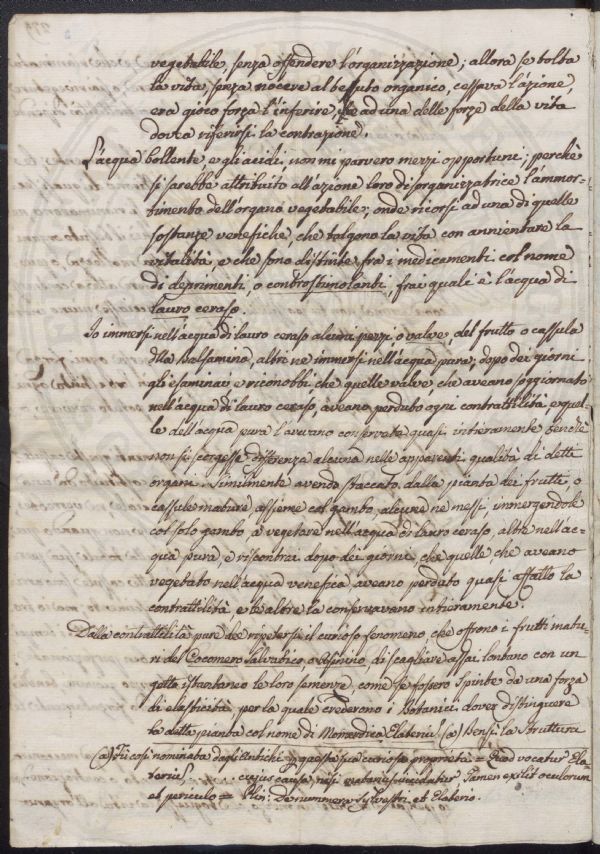 vegetabile, senza offendere l'organizzazione; allora se tolta
la vita, senza nocere al tessuto organico, cessava l'azione,
era gioco forza l'inferire, che ad una delle forze della vita
dovea riferirsi la contrazione.
L'acqua bollente, e gli acidi, non mi parvero mezzi opportuni; perchè
si sarebbe attribuito all'azione loro disorganizzatrice l'ammor-
timento dell'organo vegetabile; onde ricorsi ad una di quelle
sostanze venefiche, che tolgono la vita con annientare la
vitalità, e che sono distinte fra i medicamenti col nome
di deprimenti, o controstimolanti, frai quali è l'acqua di
lauro ceraso.
Io immersi nell'acqua di lauro ceraso alcuni pezzi, o valve, del frutto o cassula
della Balsamina, altri ne immersi nell'acqua pura; dopo dei giorni
gli esaminai, e riconobbi che quelle valve, che aveano soggiornato
nell'acqua di lauro ceraso, aveano perduto ogni contrattilità, e quel-
le dell'acqua pura l'avevano conservata quasi intieramente benchè
non si scorgesse differenza alcuna nelle apparenti qualità di detti
organi. Similmente avendo staccato dalla pianta dei frutti, o
cassule mature assieme col gambo, alcune ne messi, immergendole
col solo gambo, a vegetare nell'acqua di lauro ceraso, altre nell'ac-
qua pura, e riscontrai dopo dei giorni, che quelle, che aveano
vegetato nell'acqua venefica aveano perduto quasi affatto la
contrattilità e le altre la conservavano intieramente.
Dalla contrattilità pure dee ripetersi il curioso fenomeno, che offrono i frutti matu-
ri del Cocomero Salvatico, o Asinino, di scagliare assai lontano con un
getto istantaneo le loro semenze, come se fossero spinte da una forza
di elasticità, per la quale crederono i Botanici dover distinguere
la detta pianta col nome di Momordica Elaterium (a) Bensì la struttura
(a) Fù così nominata dagli Antichi questa sua curiosa proprietà = quod vocatur Ela-
terium, ...... cujus causa, nisi maturius incidatur semen exilit oculorum
et periculo = Plin: De cucumere Sylvestri, et Elaterio.